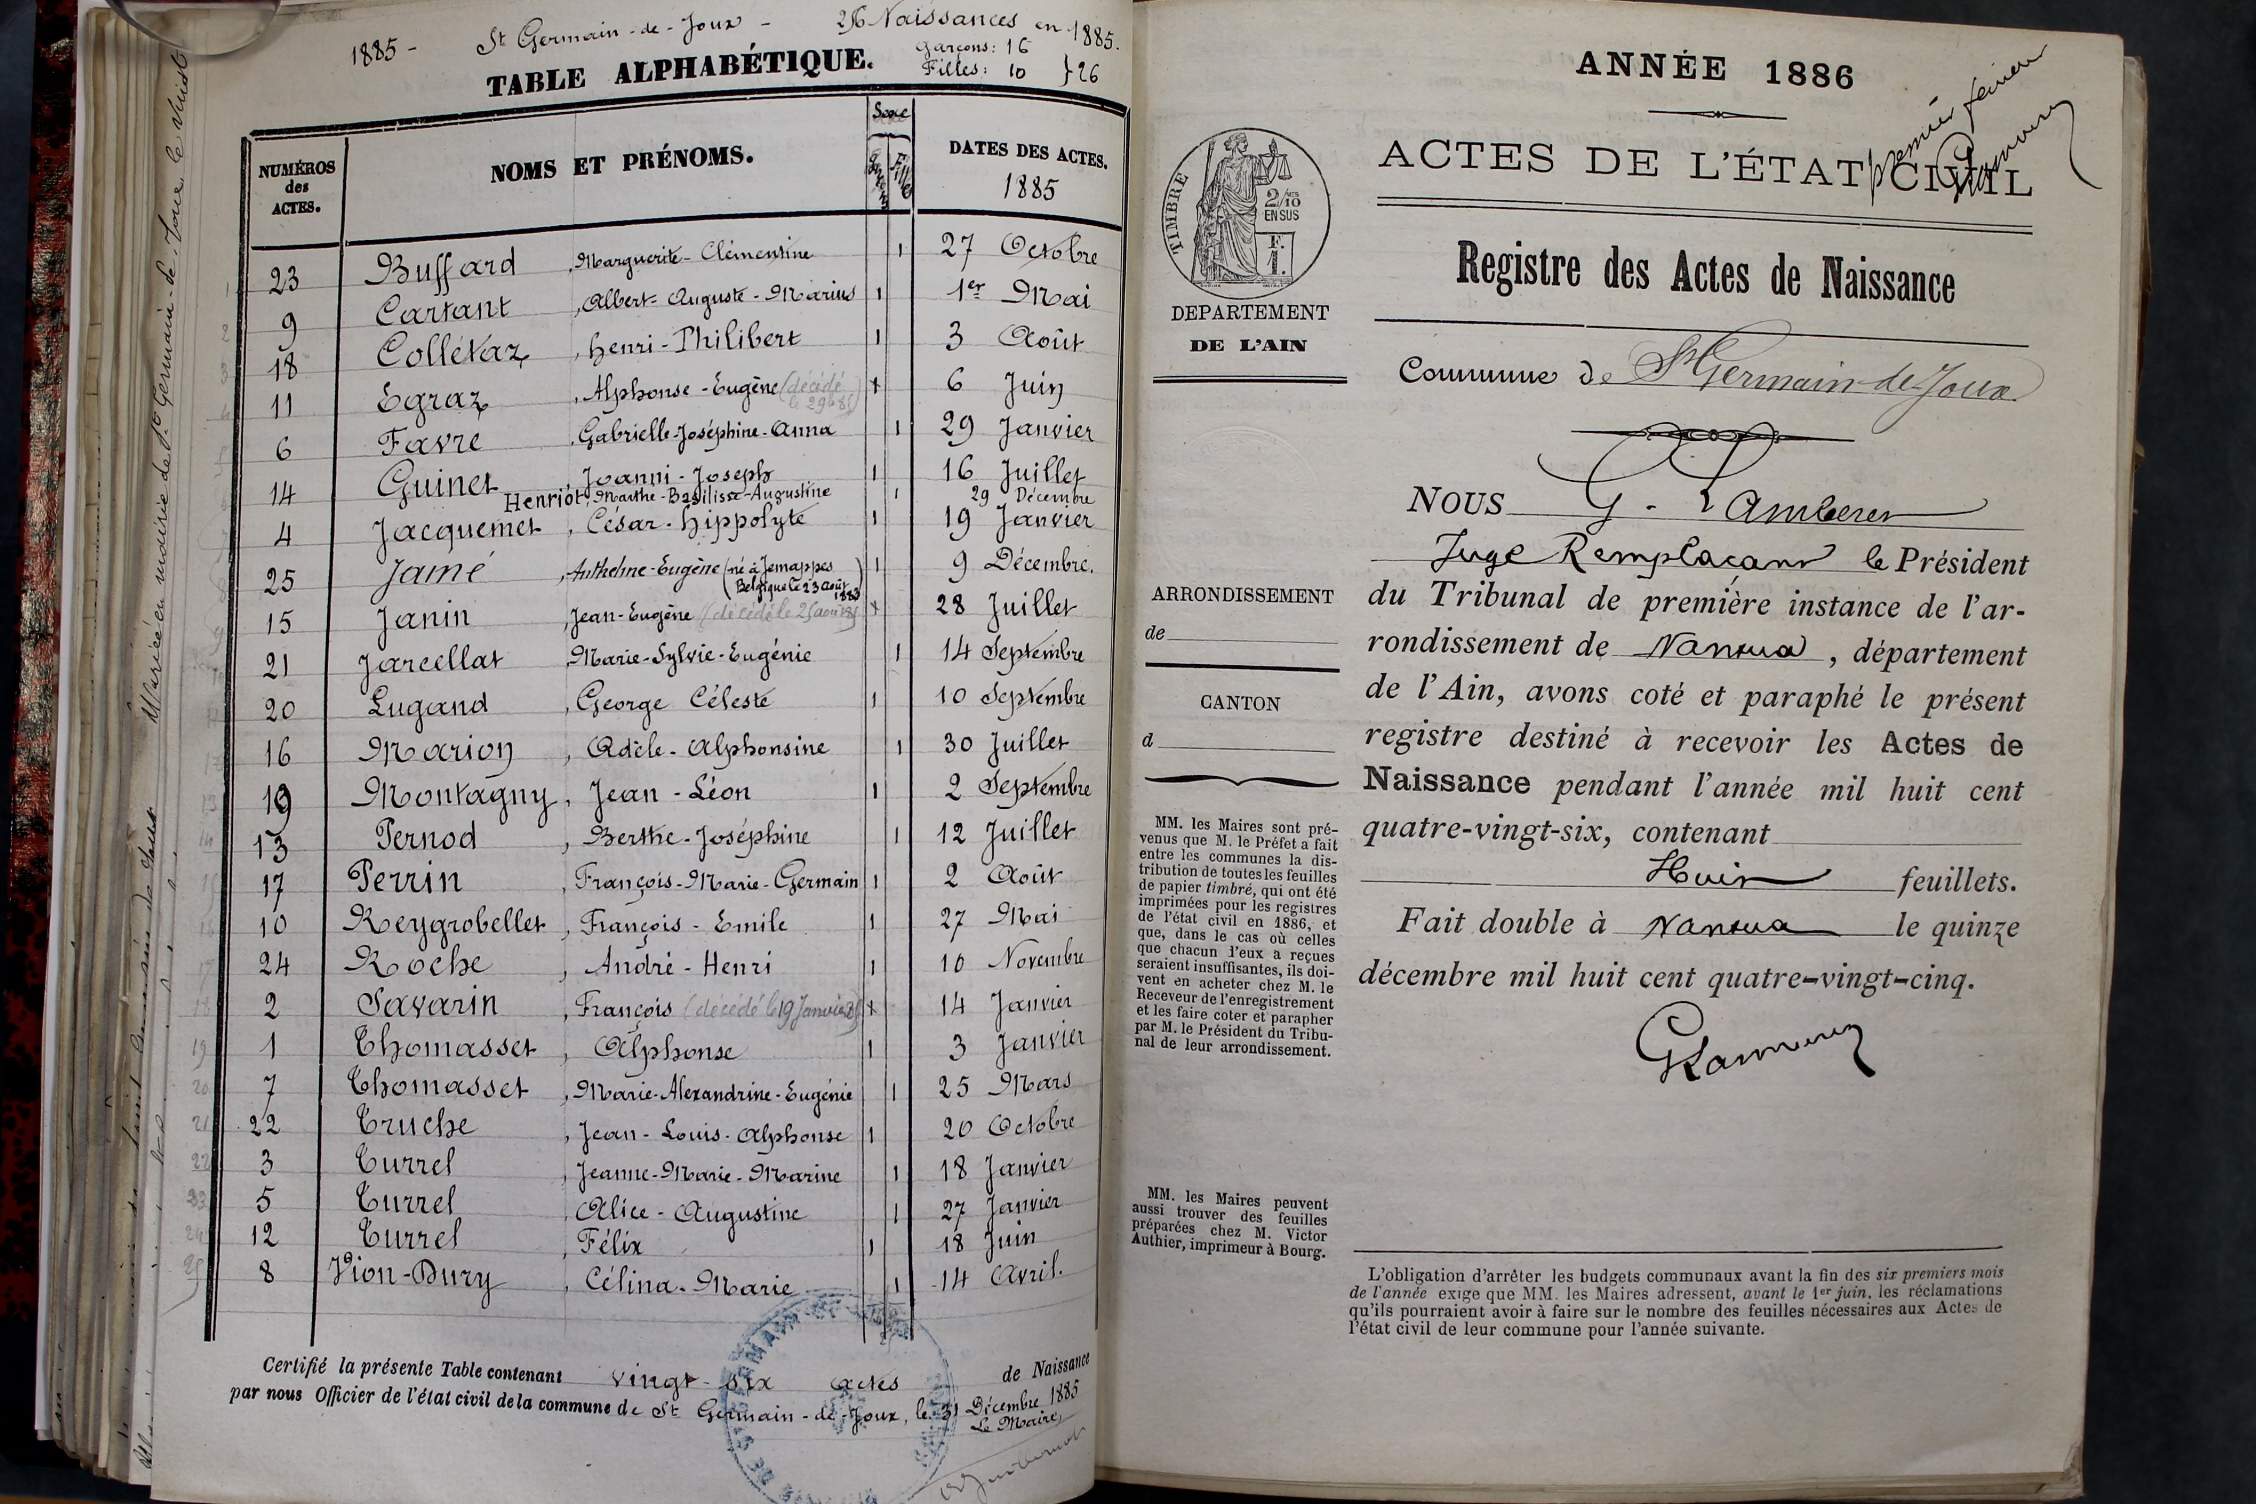 1885 - St Germain-de-Joux - 26 Naissances en 1885.
Garçons: 16
Filles: 10 } 26
TABLE ALPHABÉTIQUE.
NUMÉROS des ACTES. NOMS ET PRÉNOMS. Sexe Garçons Filles DATES DES ACTES. 1885
23 Buffard, Marguerite-Clémentine 1 27 Octobre
9 Cartant, Albert-Auguste-Marius 1 1er Mai
18 Collétaz, Henri-Philibert 1 3 Août
11 Egraz, Alphonse-Eugène (décédé 6 Juin
6 Favre, Gabrielle-Joséphine-Anna 1 29 Janvier
14 Guinet, Joanni-Joseph 1 16 Juillet
Henriot, Marthe-Basilisse-Augustine 1 29 Décembre
4 Jacquemet, César-Hippolyte 1 19 Janvier
25 Jamé, Anthelme-Eugène (né à Jemappes 1 9 Décembre.
Belgique le 23 août 1883)
15 Janin, Jean-Eugène (décédé le 28 Juillet
21 Jarcellat, Marie-Sylvie-Eugénie 1 14 Septembre
20 Lugand, George Céleste 1 10 Septembre
16 Marion, Adèle-Alphonsine 1 30 Juillet
19 Montagny, Jean-Léon 1 2 Septembre
13 Pernod, Berthe-Joséphine 1 12 Juillet
17 Perrin, François-Marie-Germain 1 2 Août
10 Reygrobellet, François-Emile 1 27 Mai
24 Roche, André-Henri 1 10 Novembre
2 Savarin, François (décédé le 19 Janvier 85) x 14 Janvier
1 Thomasset, Alphonse 1 3 Janvier
7 Thomasset, Marie-Alexandrine-Eugénie 1 25 Mars
22 Truche, Jean-Louis-Alphonse 1 20 Octobre
3 Turrel, Jeanne-Marie-Marine 1 18 Janvier
5 Turrel, Alice-Augustine 1 27 Janvier
12 Turrel, Félix 1 18 Juin
8 Vion-Dury, Célina-Marie 1 14 Avril.
Certifié la présente Table contenant vingt-six actes de Naissance
par nous Officier de l'état civil de la commune de St Germain-de-Joux, le 31 Décembre 1885
Le Maire,
ANNÉE 1886
premier feuillet
ACTES DE L'ÉTAT CIVIL
TIMBRE
2/10 EN SUS
F. 1.
DEPARTEMENT
DE L'AIN
Registre des Actes de Naissance
Commune de St Germain-de-Joux
ARRONDISSEMENT
de
CANTON
d
MM. les Maires sont pré-
venus que M. le Préfet a fait
entre les communes la dis-
tribution de toutes les feuilles
de papier timbré, qui ont été
imprimées pour les registres
de l'état civil en 1886, et
que, dans le cas où celles
que chacun d'eux a reçues
seraient insuffisantes, ils doi-
vent en acheter chez M. le
Receveur de l'enregistrement
et les faire coter et parapher
par M. le Président du Tribu-
nal de leur arrondissement.
MM. les Maires peuvent
aussi trouver des feuilles
préparées chez M. Victor
Authier, imprimeur à Bourg.
NOUS G.
Juge Remplaçant le Président
du Tribunal de première instance de l'ar-
rondissement de Nantua, département
de l'Ain, avons coté et paraphé le présent
registre destiné à recevoir les Actes de
Naissance pendant l'année mil huit cent
quatre-vingt-six, contenant
Huit feuillets.
Fait double à Nantua le quinze
décembre mil huit cent quatre-vingt-cinq.
L'obligation d'arrêter les budgets communaux avant la fin des six premiers mois
de l'année exige que MM. les Maires adressent, avant le 1er juin, les réclamations
qu'ils pourraient avoir à faire sur le nombre des feuilles nécessaires aux Actes de
l'état civil de leur commune pour l'année suivante.